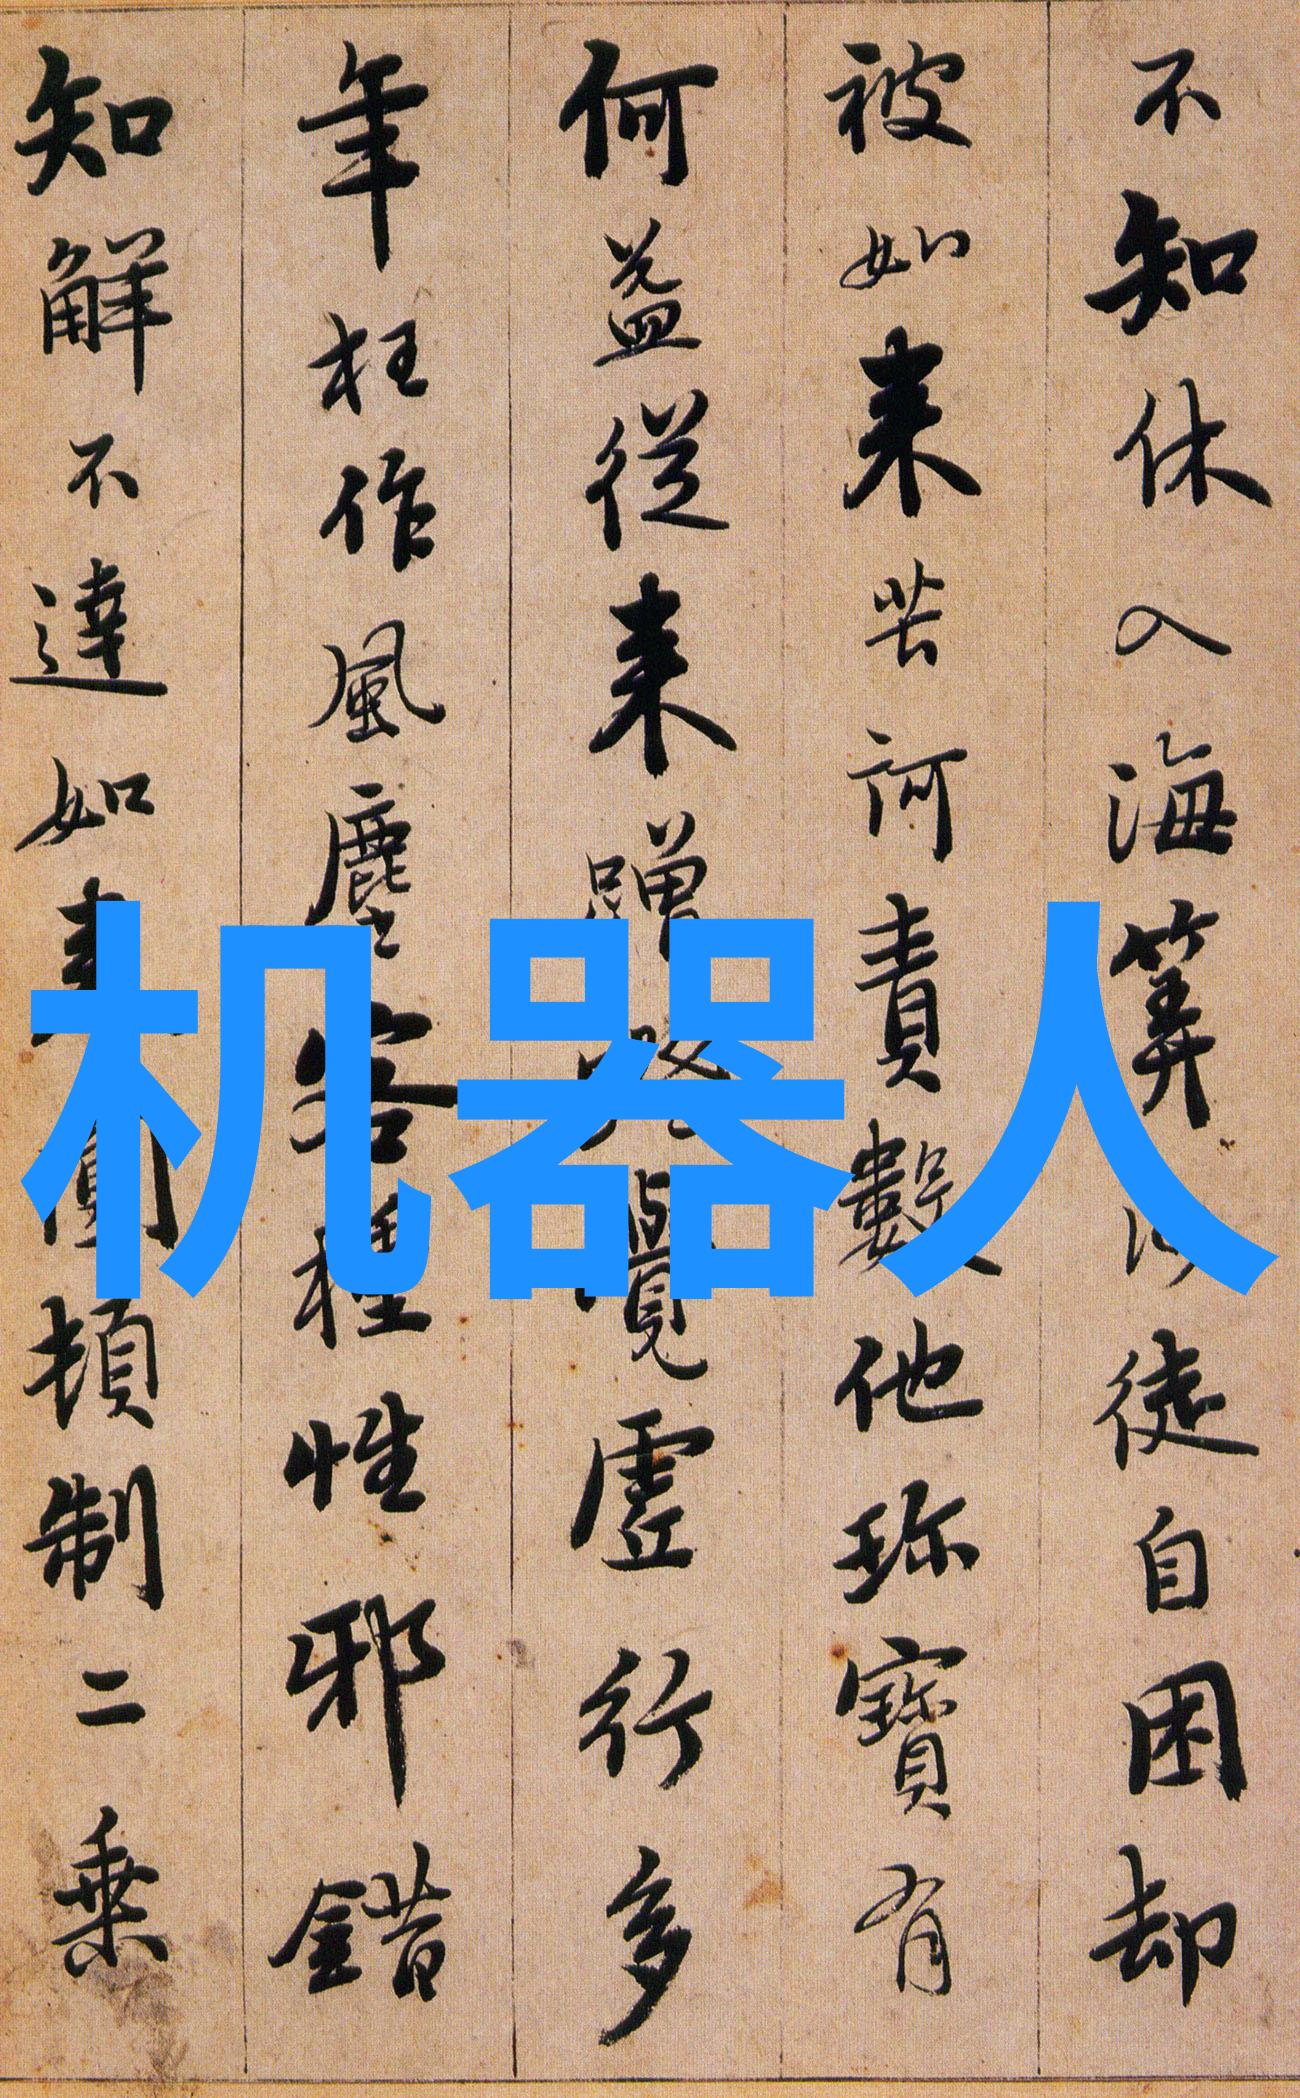 不知休入海筭沙徒自困却
被如来苦訶責數他珎寶有
何益從来蹭蹬覺虛行多
年枉作風塵客種性邪錯
知解不達如来圓頓制二乗
机器人